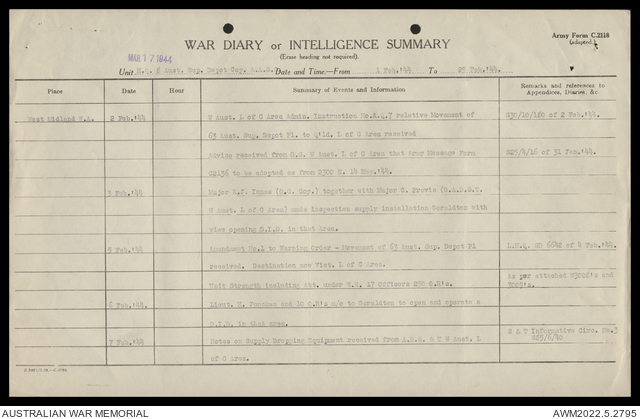 Army Form C.2118
(adapted.)
WAR DIARY or INTELLIGENCE SUMMARY
(Erase heading not required).
MAR 17 1944
Unit Aust. Sup. Depot Coy. A.A.S.C. Date and Time—From 1 Feb.'44 To 29 Feb.'44.
Place Date Hour Summary of Events and Information Remarks and references to Appendices, Diaries, &c.
West Midland W.A. 2 Feb.'44 W Aust. L of C Area Admin. Instruction No.A.Q.7 relative Movement of G30/10/180 of 2 Feb.'44.
63 Aust. Sup. Depot Pl. to Q'ld. L of C Area received
Advice received from G.S. W Aust. L of C Area that Army Message Form G25/4/16 of 31 Jan.'44.
to be adopted as from 2300 H. 14 Mar.'44.
3 Feb.'44 Major E.F. Innes (O.C. Coy.) together with Major
W Aust. L of C Area) made inspection supply installation Geraldton with
view opening in that Area.
5 Feb.'44 Amendment No.1 to Warning Order - Movement of 63 Aust. Sup. Depot Pl L.H.Q. of 4 Feb.'44.
received. Destination now Vict. L of C Area.
Unit Strength including Att. under 17 Officers 250 O.R's. As per attached and
6 Feb.'44. Lieut. and 10 O.R's to Geraldton to open and operate a
in that area.
7 Feb.'44 Notes on Supply Dropping Equipment received from S & T W Aust. L S & T Informative Circ. No.3
of C Area.
AUSTRALIAN WAR MEMORIAL AWM2022.5.2795